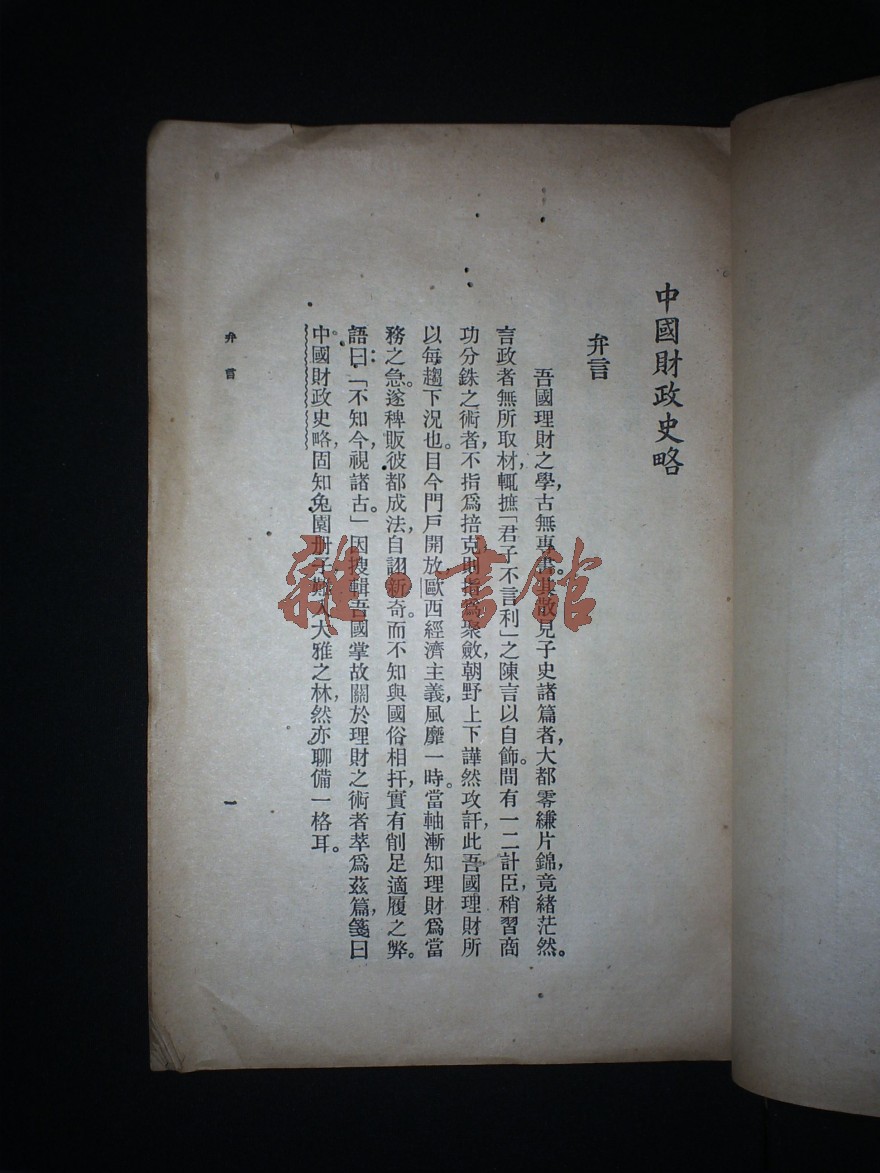 中國財政史略
弁言
吾國理財之學，古無專書。其散見子史諸篇者，大都零縑片錦，竟緒茫然。
言政者無所取材，輒摭「君子不言利」之陳言以自飾。間有一二計臣，稍習商
功分銖之術者，不指爲掊克，則指爲聚斂，朝野上下，譁然攻訐，此吾國理財所
以每趨下況也。目今門戶開放，歐西經濟主義，風靡一時。當軸漸知理財爲當
務之急。遂稗販彼都成法，自詡新奇。而不知與國俗相扞，實有削足適履之弊。
語曰：「不知今，視諸古。」因搜輯吾國掌故關於理財之術者，萃爲茲篇，箋曰
中國財政史略，固知兔園册子，難入大雅之林，然亦聊備一格耳。
弁言
一
雜·書館